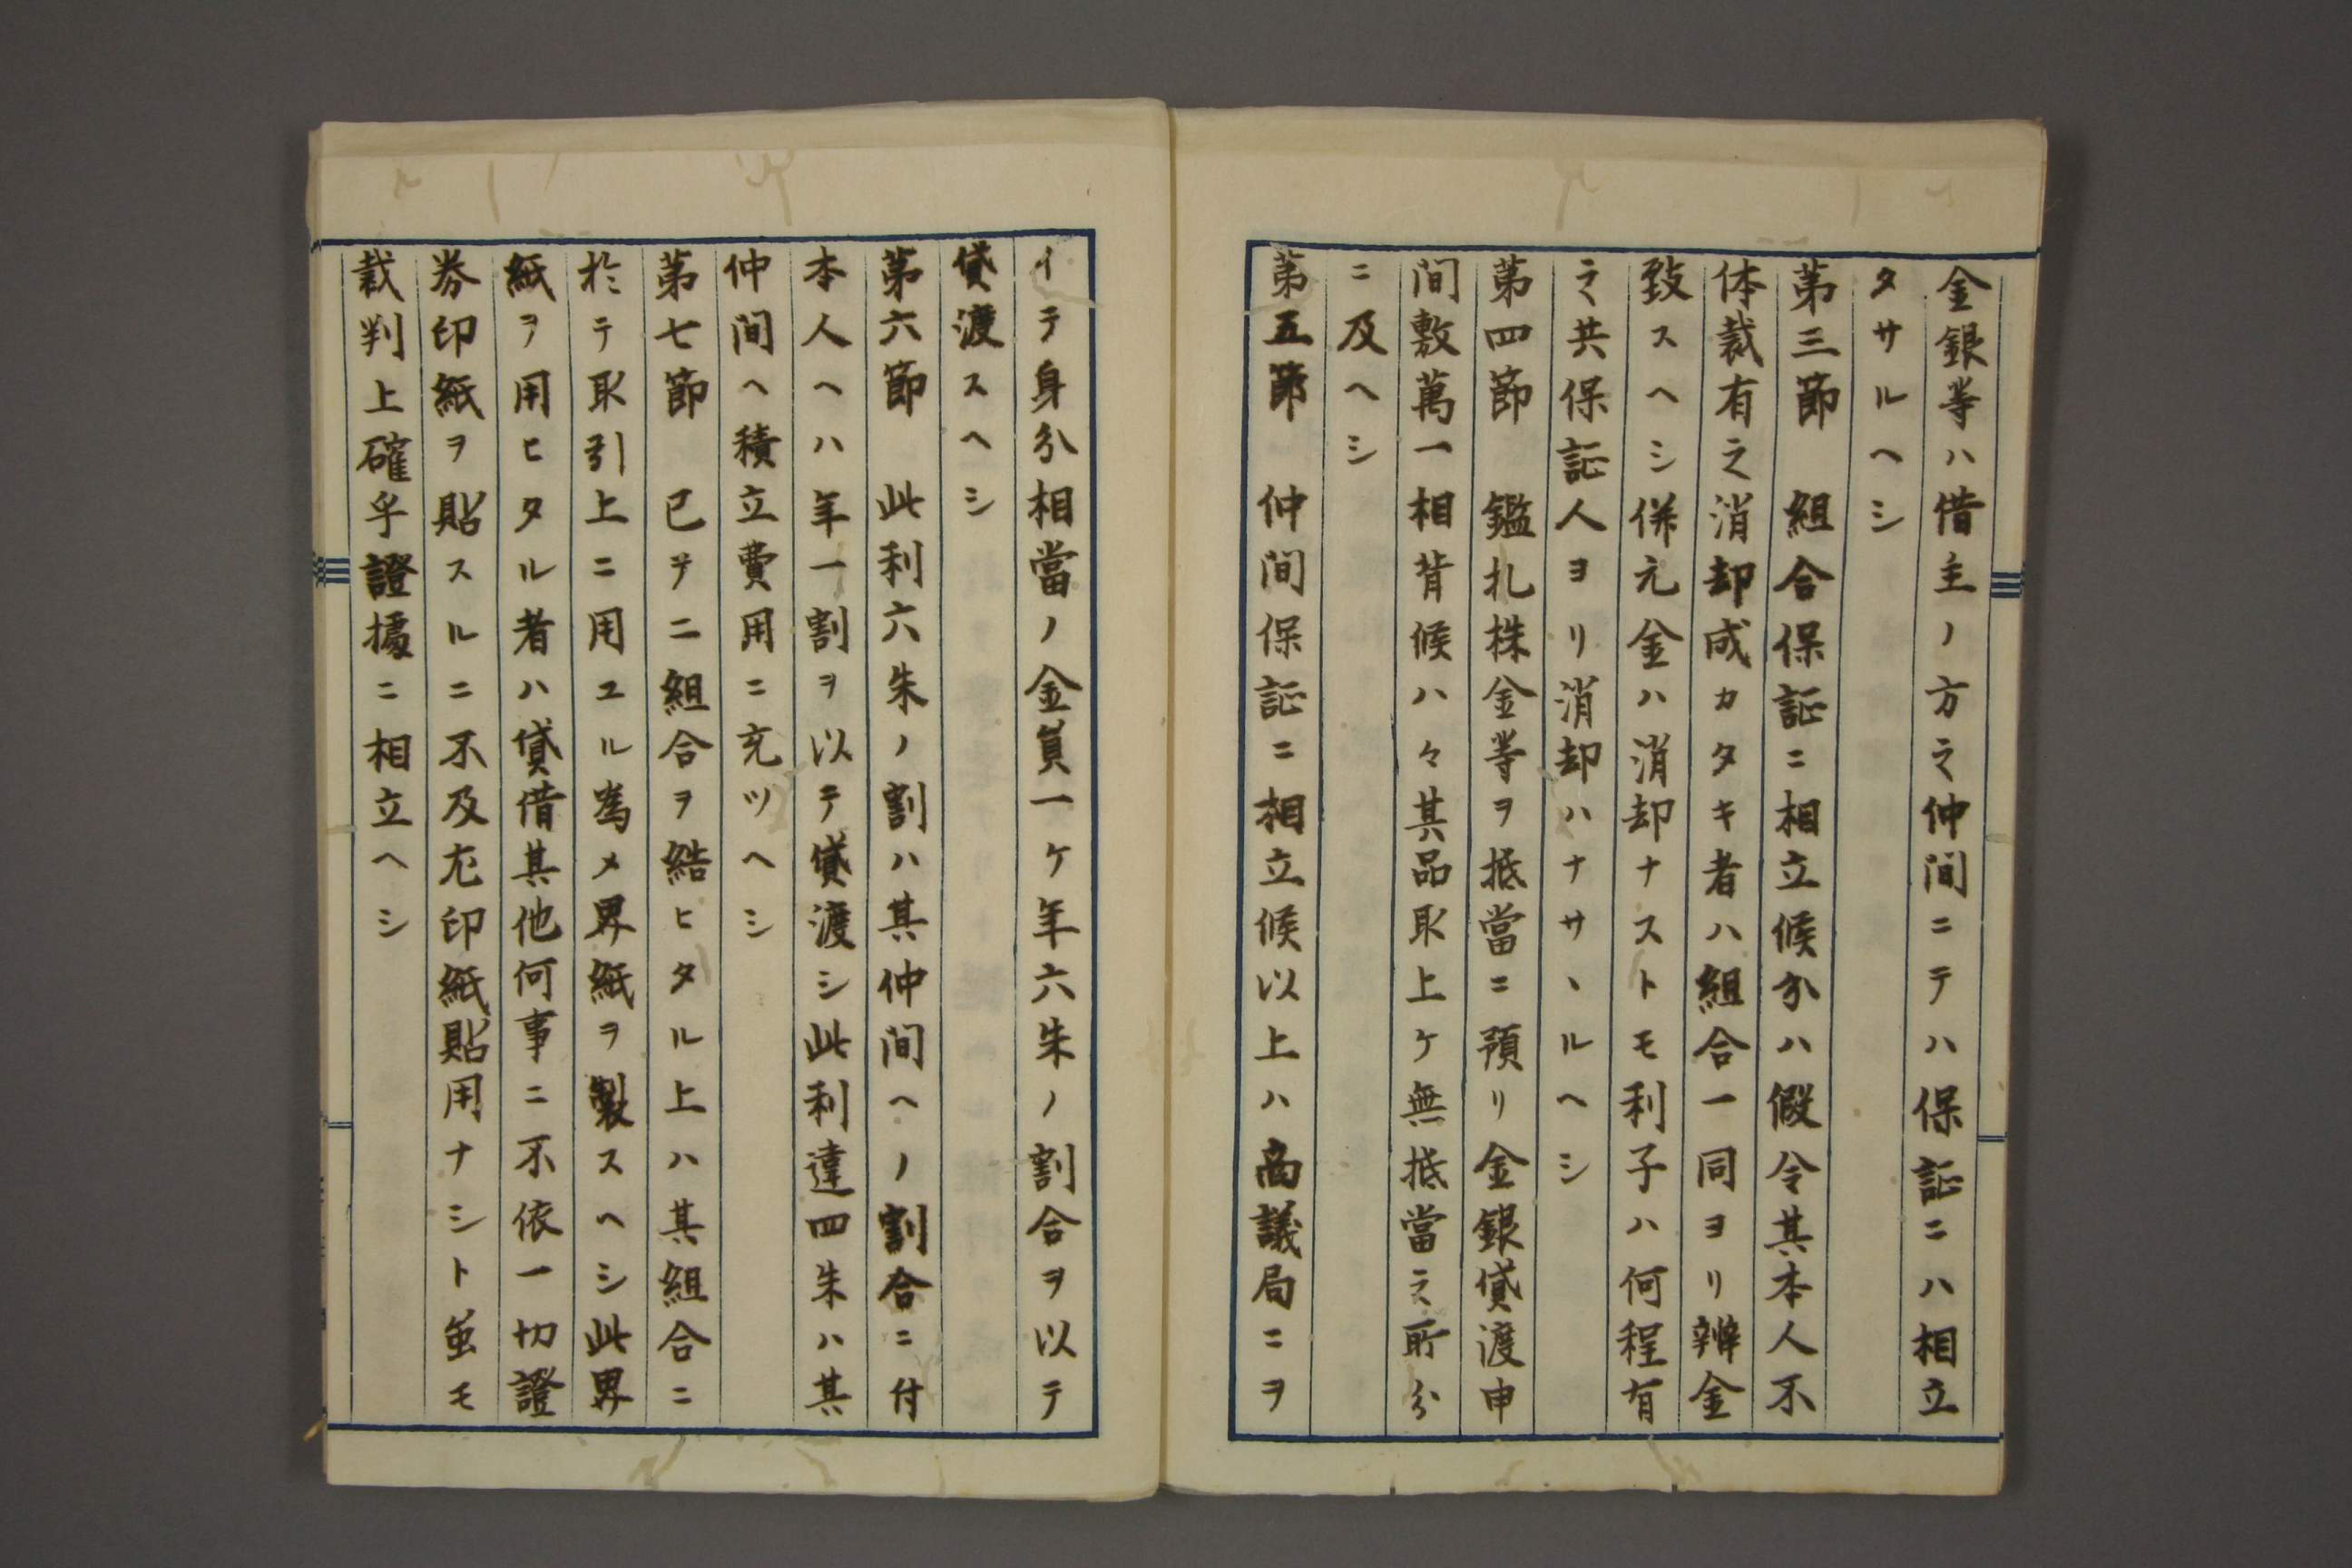 金銀等ハ借主ノ方ニテ仲间ニテハ保証ニハ相立
タサルヘシ
第三節　組合保証ニ相立候分ハ假令其本人不
体裁有之消却成カタキ者ハ組合一同ヨリ辨金
致スヘシ併元金ハ消却ナストモ利子ハ何程有
之共保証人ヨリ消却ハナサヽルヘシ
第四節　鑑札株金等ヲ抵當ニ預リ金銀貸渡申
间敷萬一相背候ハ々其品取上ケ無抵當之所分
ニ及ヘシ
第五節　仲间保証ニ相立候以上ハ商議局ニヲ
イテ身分相當ノ金員一ケ年六朱ノ割合ヲ以テ
貸渡スヘシ
第六節　此利六朱ノ割ハ其仲间ヘノ割合ニ付
本人ヘハ年一割ヲ以テ貸渡シ此利違四朱ハ其
仲间ヘ積立費用ニ充ツヘシ
第七節　已ヲニ組合ヲ結ヒタル上ハ其組合ニ
於テ取引上ニ用ユル為メ界紙ヲ製スヘシ此界
紙ヲ用ヒタル者ハ貸借其他何事ニ不依一切證
券印紙ヲ貼スルニ不及尤印紙貼用ナシト虽モ
裁判上確乎證據ニ相立ヘシ